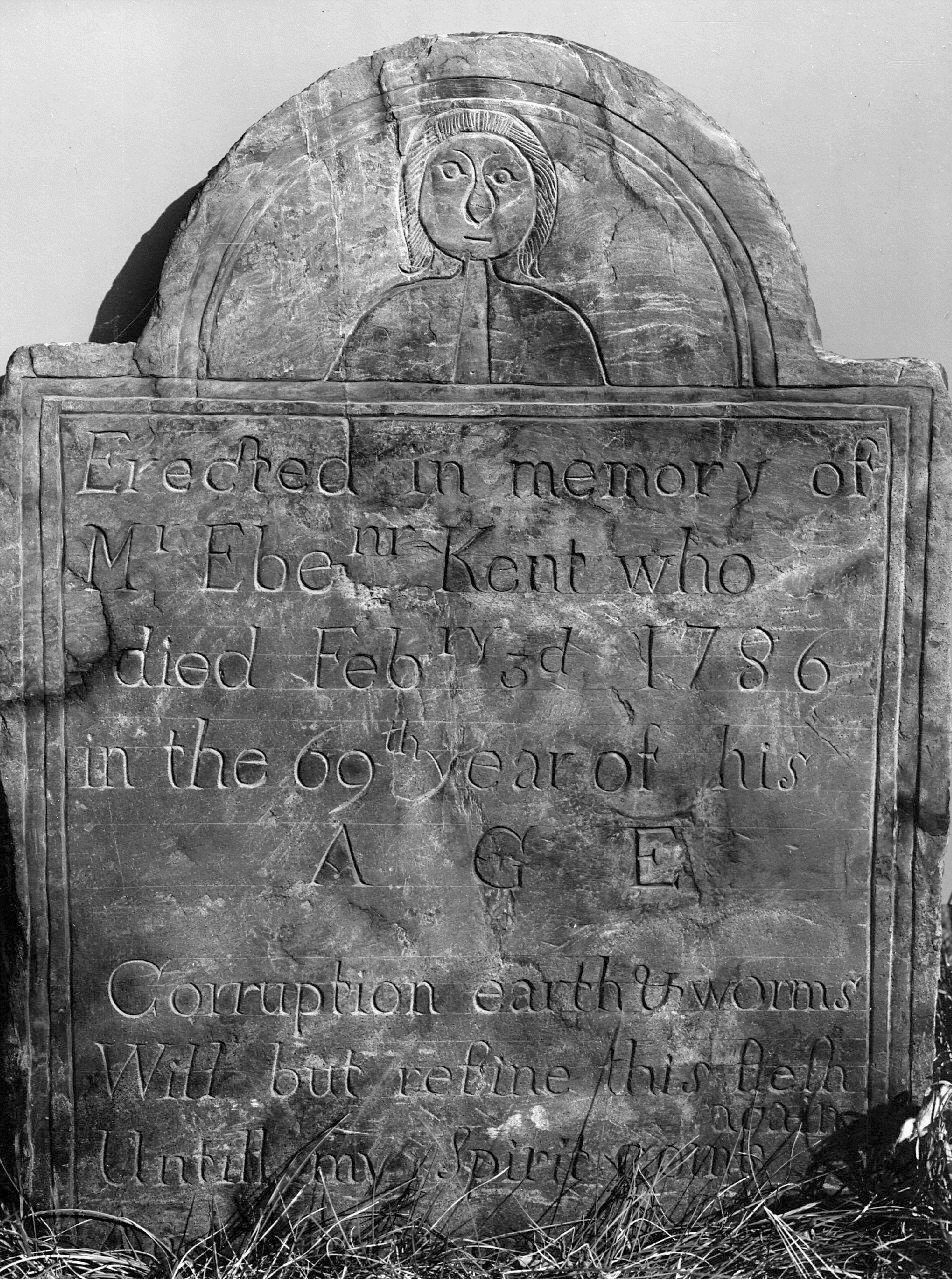 Erected in memory of
Mr Ebenr Kent who
died Febry 3d 1786
in the 69th year of his
A G E
Corruption earth & worms
Will but refine this flesh
again
Untill my Spirit